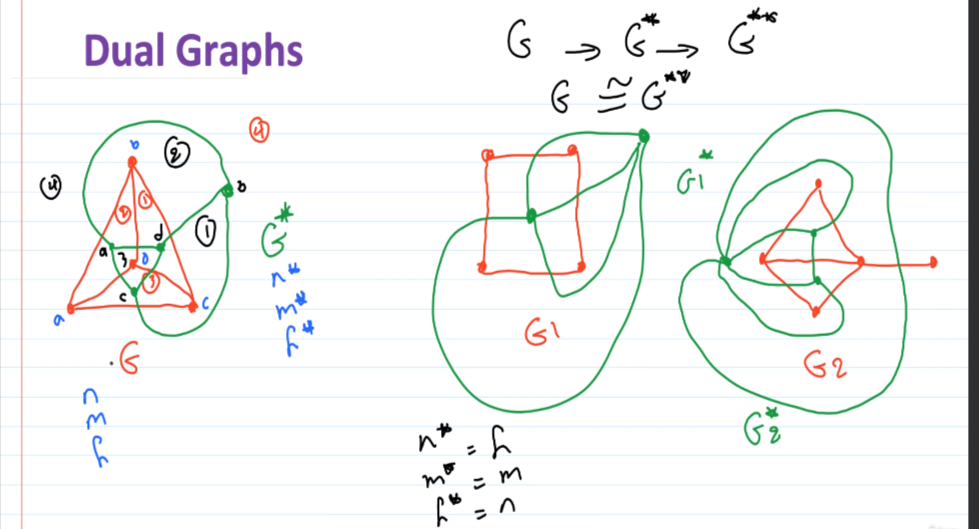 Dual Graphs
G → G* → G**
G ≅ G**
b
②
④
④
②
①
b
①
G*
a
d
3
D
c
③
a
c
n*
m*
f*
G
n
m
f
G1*
G1
G2
G2*
n* = f
m* = m
f* = n